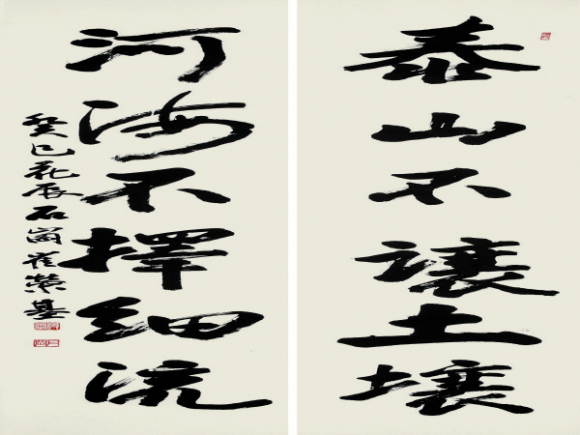 泰山不讓土壤
河海不擇細流
癸巳花辰石崗崔榮基